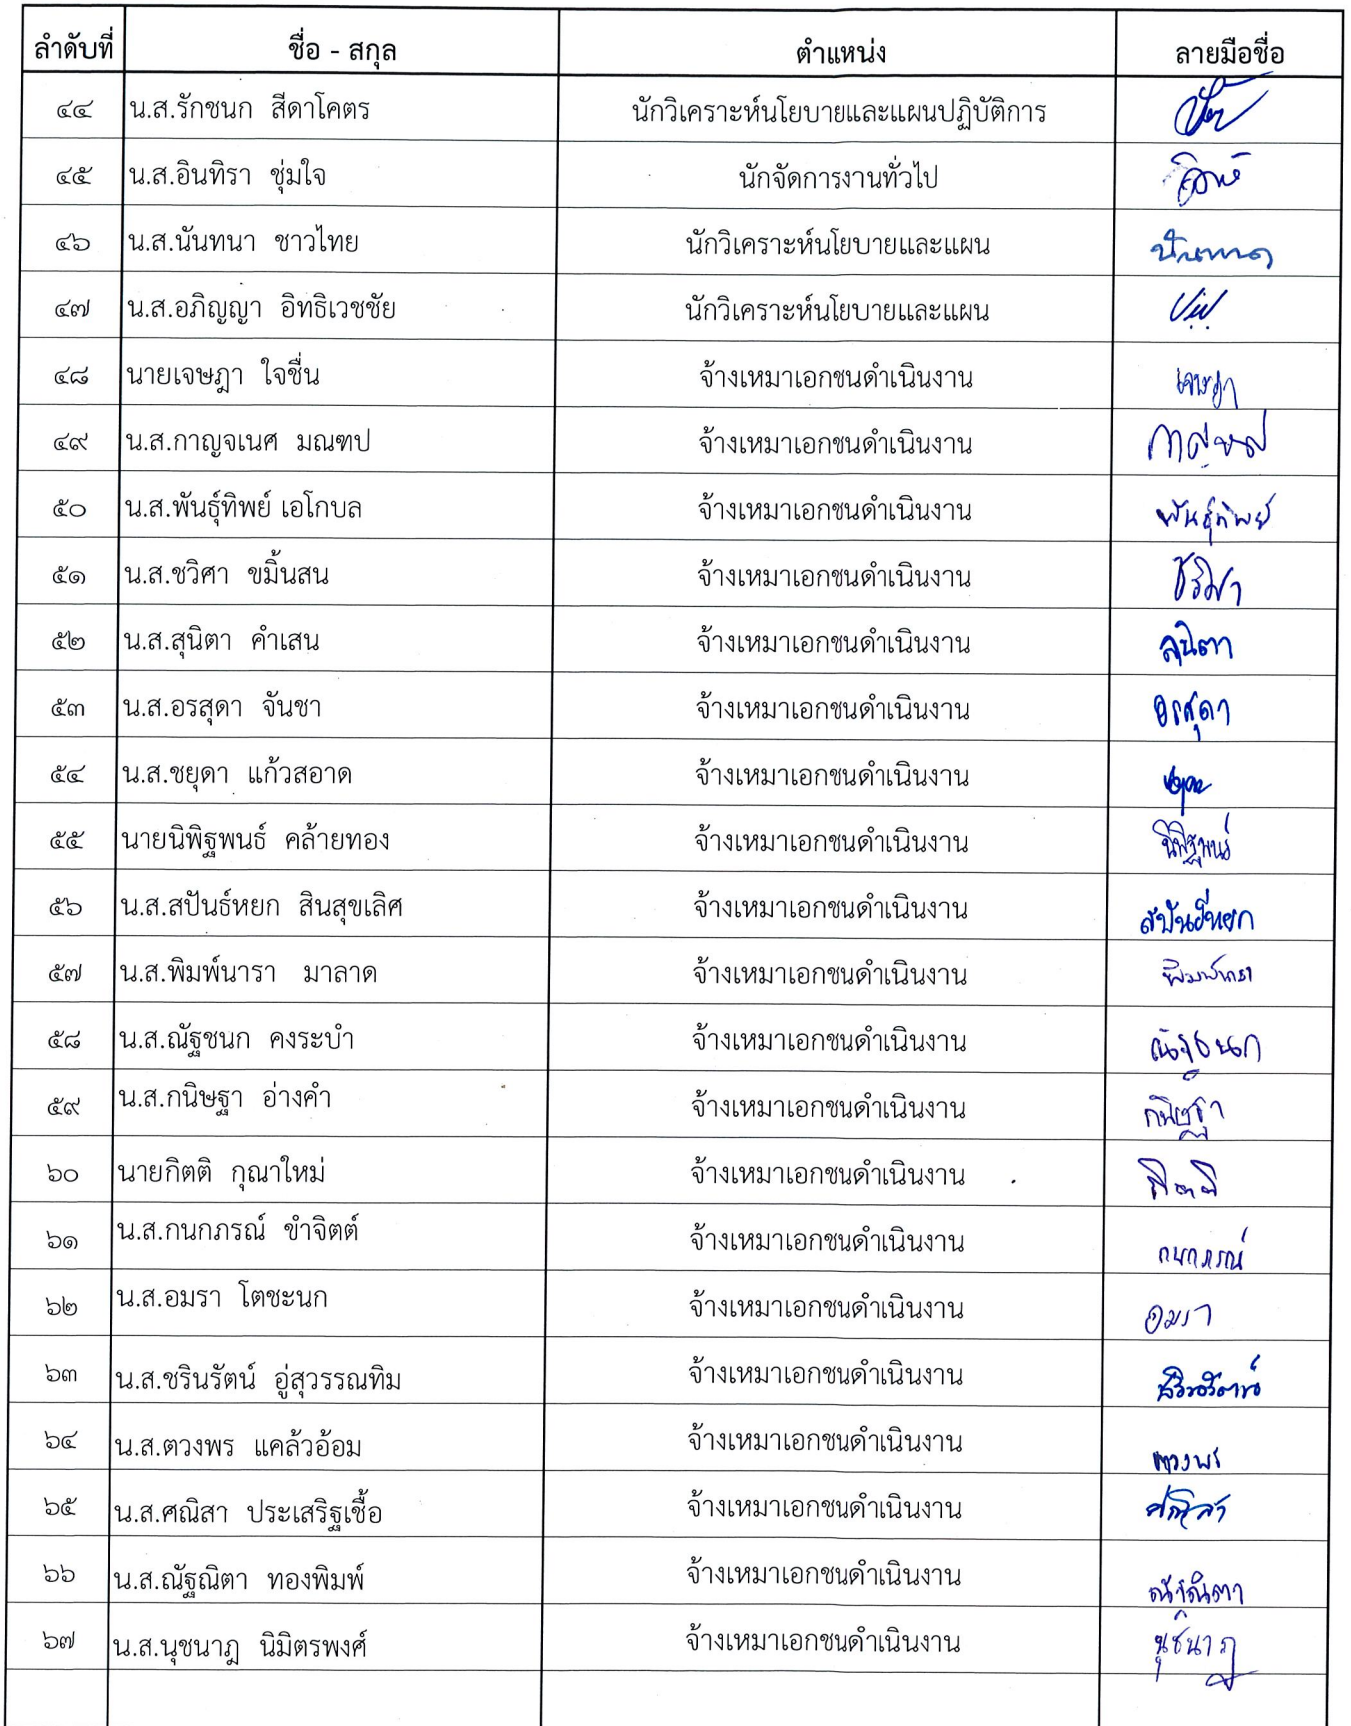 ลำดับที่ ชื่อ - สกุล ตำแหน่ง ลายมือชื่อ
๔๔ น.ส.รักชนก สีดาโคตร นักวิเคราะห์นโยบายและแผนปฏิบัติการ
๔๕ น.ส.อินทิรา ชุ่มใจ นักจัดการงานทั่วไป
๔๖ น.ส.นันทนา ชาวไทย นักวิเคราะห์นโยบายและแผน นันทนา
๔๗ น.ส.อภิญญา อิทธิเวชชัย นักวิเคราะห์นโยบายและแผน
๔๘ นายเจษฎา ใจชื่น จ้างเหมาเอกชนดำเนินงาน เจษฎา
๔๙ น.ส.กาญจเนศ มณฑป จ้างเหมาเอกชนดำเนินงาน
๕๐ น.ส.พันธุ์ทิพย์ เอโกบล จ้างเหมาเอกชนดำเนินงาน พันธุ์ทิพย์
๕๑ น.ส.ชวิศา ขมิ้นสน จ้างเหมาเอกชนดำเนินงาน
๕๒ น.ส.สุนิตา คำเสน จ้างเหมาเอกชนดำเนินงาน สุนิตา
๕๓ น.ส.อรสุดา จันชา จ้างเหมาเอกชนดำเนินงาน อรสุดา
๕๔ น.ส.ชยุดา แก้วสอาด จ้างเหมาเอกชนดำเนินงาน
๕๕ นายนิพิฐพนธ์ คล้ายทอง จ้างเหมาเอกชนดำเนินงาน นิพิฐพนธ์
๕๖ น.ส.สปันธ์หยก สินสุขเลิศ จ้างเหมาเอกชนดำเนินงาน สปันธ์หยก
๕๗ น.ส.พิมพ์นารา มาลาด จ้างเหมาเอกชนดำเนินงาน พิมพ์นารา
๕๘ น.ส.ณัฐชนก คงระบำ จ้างเหมาเอกชนดำเนินงาน ณัฐชนก
๕๙ น.ส.กนิษฐา อ่างคำ จ้างเหมาเอกชนดำเนินงาน กนิษฐา
๖๐ นายกิตติ กุณาใหม่ จ้างเหมาเอกชนดำเนินงาน กิตติ
๖๑ น.ส.กนกภรณ์ ขำจิตต์ จ้างเหมาเอกชนดำเนินงาน กนกภรณ์
๖๒ น.ส.อมรา โตชะนก จ้างเหมาเอกชนดำเนินงาน อมรา
๖๓ น.ส.ชรินรัตน์ อู่สุวรรณทิม จ้างเหมาเอกชนดำเนินงาน ชรินรัตน์
๖๔ น.ส.ตวงพร แคล้วอ้อม จ้างเหมาเอกชนดำเนินงาน ตวงพร
๖๕ น.ส.ศณิสา ประเสริฐเชื้อ จ้างเหมาเอกชนดำเนินงาน ศณิสา
๖๖ น.ส.ณัฐณิตา ทองพิมพ์ จ้างเหมาเอกชนดำเนินงาน ณัฐณิตา
๖๗ น.ส.นุชนาฎ นิมิตรพงศ์ จ้างเหมาเอกชนดำเนินงาน นุชนาฎ